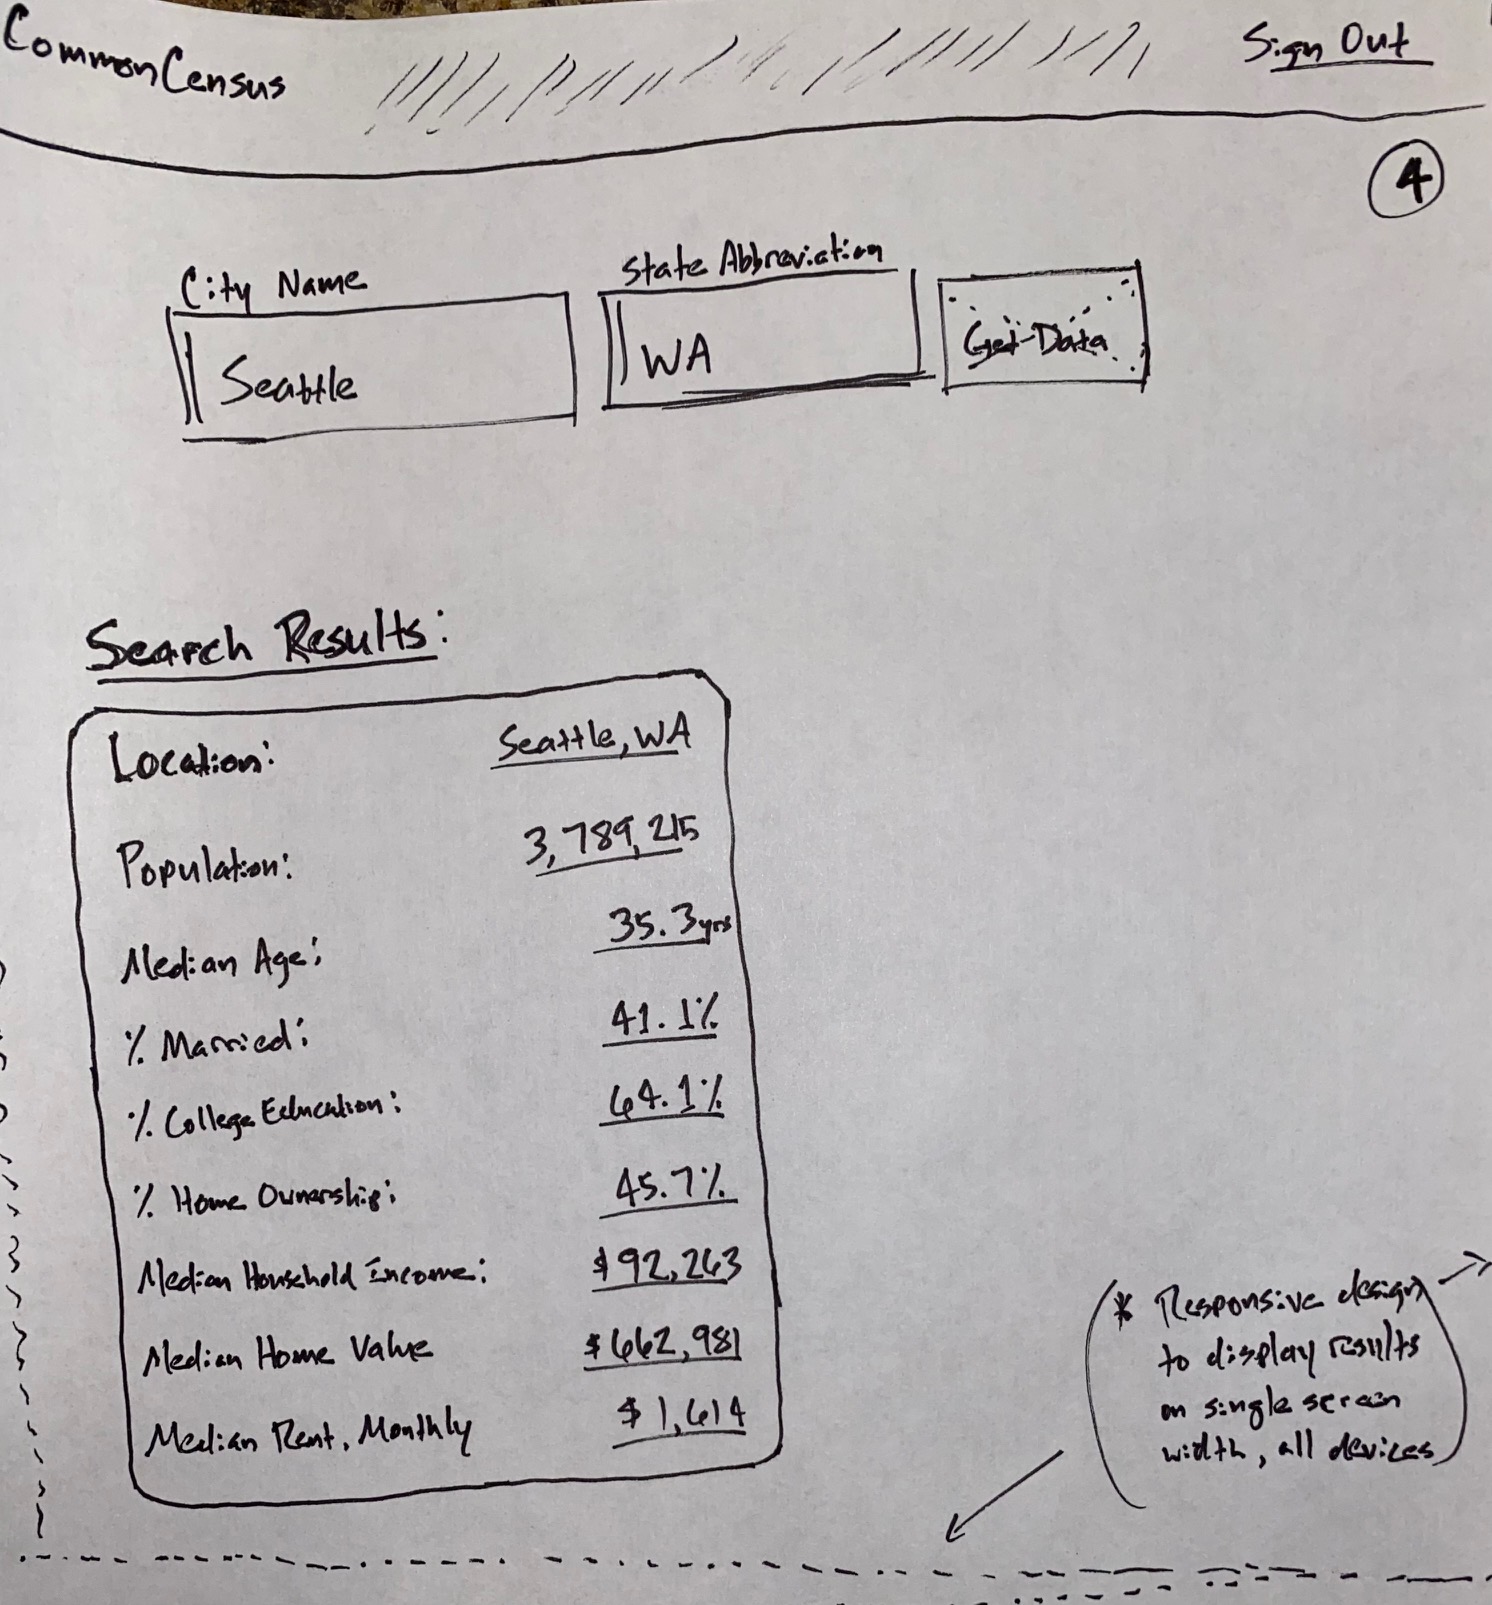 CommonCensus
Sign Out
4
City Name
State Abbreviation
Seattle
WA
Get Data
Search Results:
Location: Seattle, WA
Population: 3,789,215
Median Age: 35.3 yrs
% Married: 41.1%
% College Education: 64.1%
% Home Ownership: 45.7%
Median Household Income: $92,263
Median Home Value $662,981
Median Rent, Monthly $1,614
* Responsive design
to display results
on single screen
width, all devices